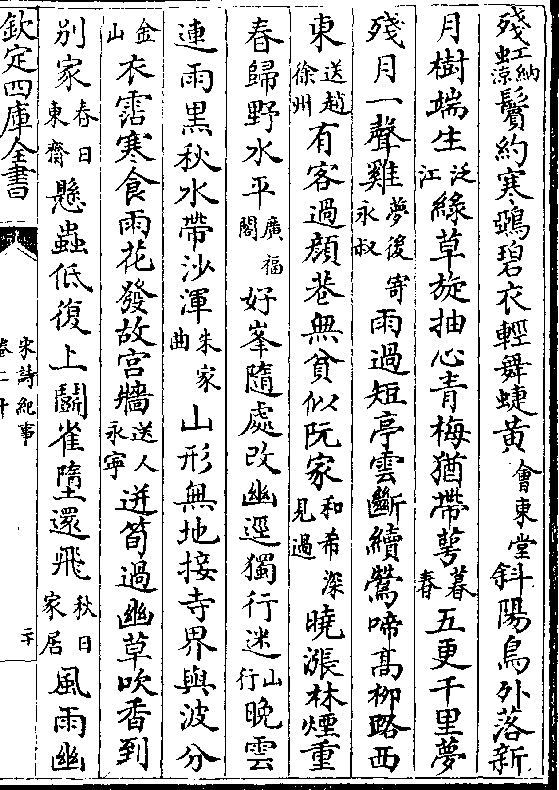 殘虹納涼鬢約寒鵶碧衣輕舞蜨黄會東堂斜陽鳥外落新
月樹端生泛江緑草旋抽心青梅猶帶萼暮春五更千里夢
殘月一聲雞夢後寄永叔雨過短亭雲斷續鶯啼髙柳路西
東送趙徐州有客過顔巷無貧似阮家和希深見過曉漲林煙重
春歸野水平廣福閣好峯隨處改幽逕獨行迷山行晚雲
連雨黒秋水帶沙渾朱家曲山形無地接寺界與波分
金山衣霑寒食雨花發故宫牆送人永寧迸筍過幽草吹香到
别家春日東齋懸蟲低復上鬭雀墮還飛秋日家居風雨幽
欽定四庫全書
宋詩紀事
卷二十